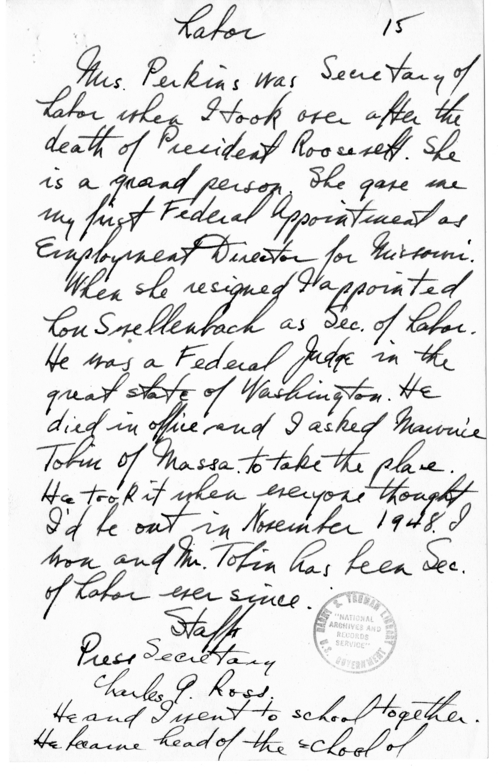 Labor 15
Mrs. Perkins was Secretary of
Labor when I took over after the
death of President Roosevelt. She
is a grand person. She gave me
my first Federal Appointment as
Employment Director for Missouri.
When she resigned I appointed
Lou Swellenbach as Sec. of Labor.
He was a Federal Judge in the
great state of Washington. He
died in office and I asked Maurice
Tobin of Massa. to take the place.
He took it when everyone thought
I'd be out in November 1948. I
won and Mr. Tobin has been Sec.
of Labor ever since.
HARRY S. TRUMAN LIBRARY
"NATIONAL
ARCHIVES AND
RECORDS
SERVICE"
U.S. GOVERNMENT
Staff
Press Secretary
Charles G. Ross.
He and I went to school together.
He became head of the school of